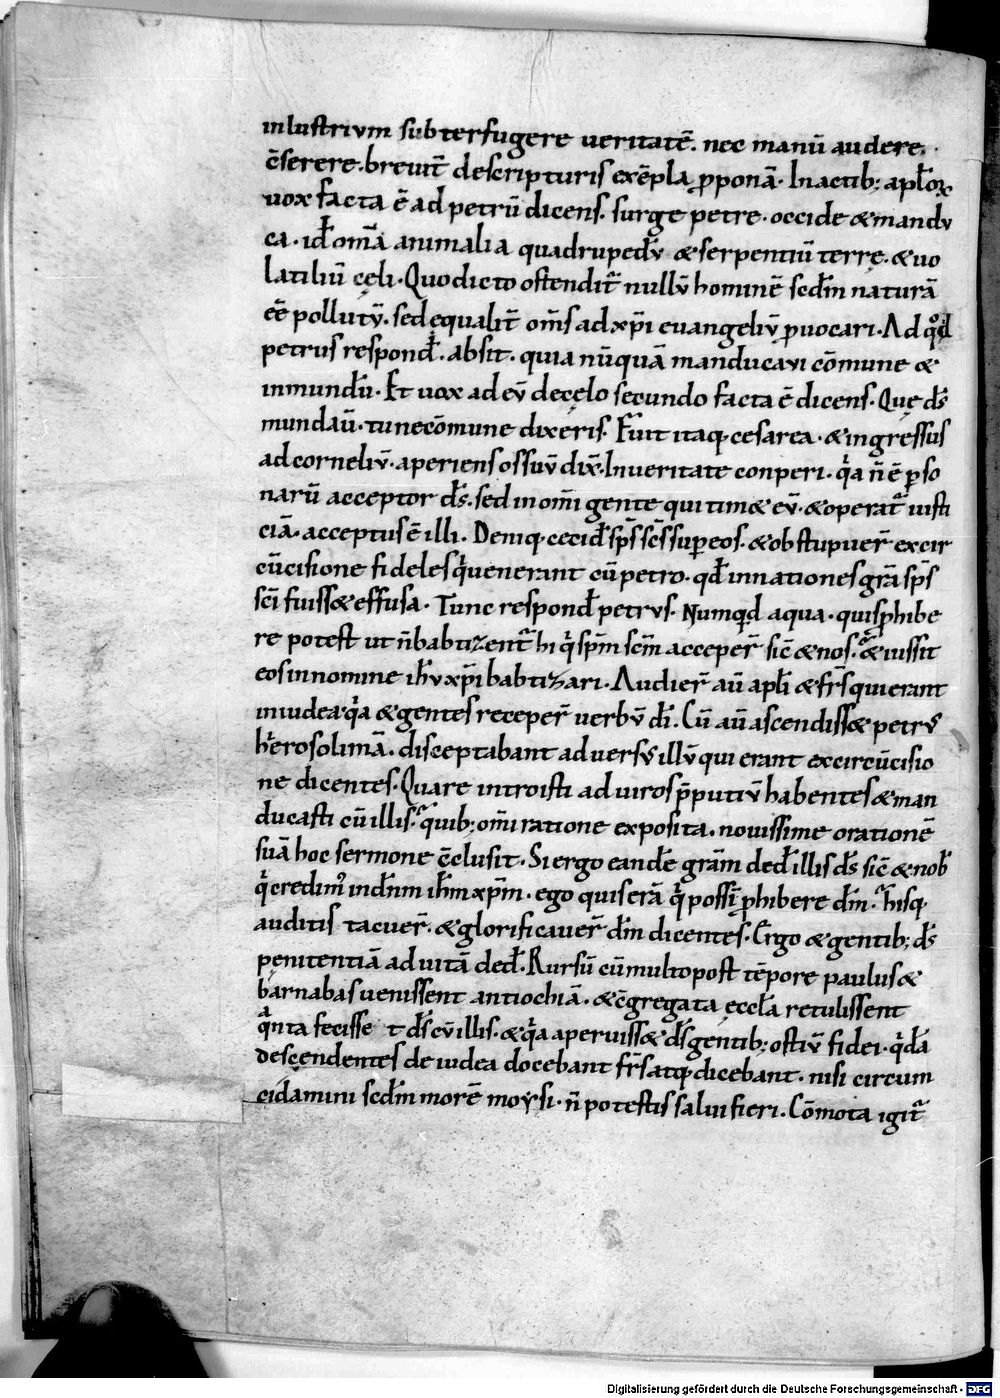 inlustrivm subterfugere ueritatē. nec manū audere.
c̄serere. breuit̄ descripturis exēpla p̱ponā. Inactib; apl̄oꝝ
uox facta ē ad petrū dicens. surge petre. occide &mandv
ca. id̄ om̄ā animalia quadrupedv̄ &serpentiū terrę. &uo
latiliū cęli. Quodicto ostendit᷑ nullv̄ hominē scd̄m naturā
eē̄ pollutv̄. sed ęqualit̄ om̄s ad xp̄i euangeliv̄ ꝓuocari. Ad qͦd
petrus respond̄. absit. quia nūquā manducavi cōmune &
inmundū. Et uox ad ev̄ decęlo secundo facta ē dicens. Quę ds̄
mundaū. tunecōmune dixeris. Fuit itaq; cesarea. &ingressus
ad corneliv̄. aperiens ossuv̄ dix̄. Inueritate conperi. qͥa n̄ ē pso
narū acceptor ds̄. sed in om̄i gente qui tim& ev̄. &operat᷑ iusti
ciā. acceptus ē illi. Deniq; cecid̄ sp̄s sc̄s sup eos. &obstupuer̄ excir
cūcisione fideles qͥuenerant cū petro. qd̄ innationes grā sp̄s
sc̄i fuiss& effusa. Tunc respond̄ petrvs. Numqͥd aqua. quis ꝓhibe
re potest ut n̄ babtizent᷑ hi qͥ sp̄m sc̄m acceper̄ sic̄ &nos. &iussit
eos innomine ih̄v xp̄i babtizari. Audier̄ aū apl̄i &fr̄s qui erant
iniudea qͥa &gentes receper̄ uerbv̄ dī. Cū aū ascendiss& petrꝰ
h̄ierosolimā. disceptabant aduersꝰ illv̄ qui erant excircūcisio
ne dicentes. Quare introisti ad uiros p̄putiv̄ habentes &man
ducasti cū illis. quib; om̄i ratione exposita. nouissime orationē
suā hoc sermone c̄clusit. Si ergo eandē grām ded̄ illis ds̄ sic̄ &nob̄
qͥ credimꝰ indn̄m ih̄m xp̄m. ego quis erā qͥ possī ꝓhibere dm̄. hisq;
auditis tacuer̄. &glorificauer̄ dm̄ dicentes. Ergo &gentib; ds̄
penitentiā aduitā ded̄. Rursū cū multo post tēpore paulus &
barnabas uenissent antiochiā. &c̄gregata ęccl̄a retulissent
qͣnta fecisse t ds̄ cv̄ illis. &qͥa aperuiss& ds̄ gentib; ostiv̄ fidei. qͥdā
descendentes de iudea docebant fr̄s atq; dicebant. nisi circum
cidamini scd̄m morē moysi. n̄ potestis salui fieri. Cōmota igit᷑
Digitalisierung gefördert durch die Deutsche Forschungsgemeinschaft - DFG